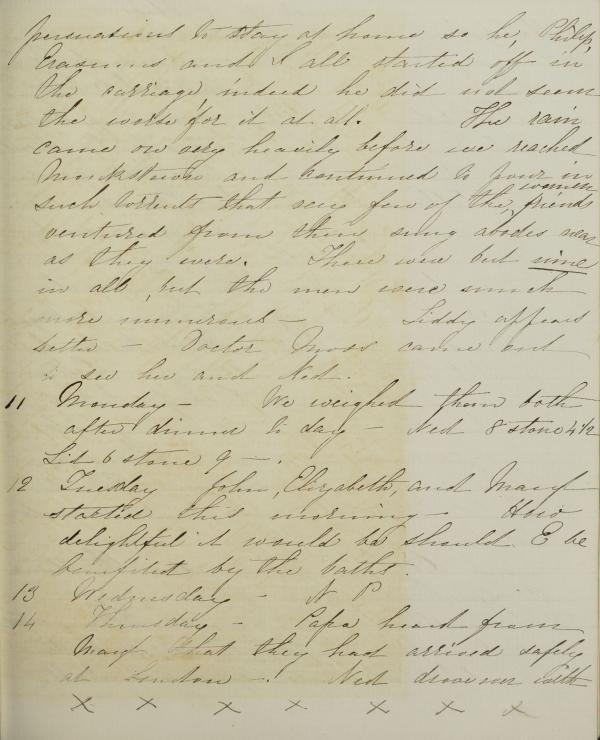 persuations to stay at home so he, Philip,
Erasmus and I all started off in
the carriage, indeed he did not seem
the worse for it at all. The rain
came on very heavily before we reached
Monkstown and continued to pour in
such torrents that very few of the women friends
ventured from their snug abodes near
as they were. There were but nine
in all, but the men were much
more numerous - Liddy appears
better - Doctor Moss came out
to see her and Ned.
11 Monday - We weighed them both
after dinner to day - Ned 8 stone 4 1/2
Lid 6 stone 9 -.
12 Tuesday John, Elizabeth, and Mary
started this morning - How
delightful it would be should E be
benefited by the baths.
13 Wednesday - N P
14 Thursday - Papa heard from
Mary that they had arrived safely
at London -. Ned drove over with
x x x x x x x